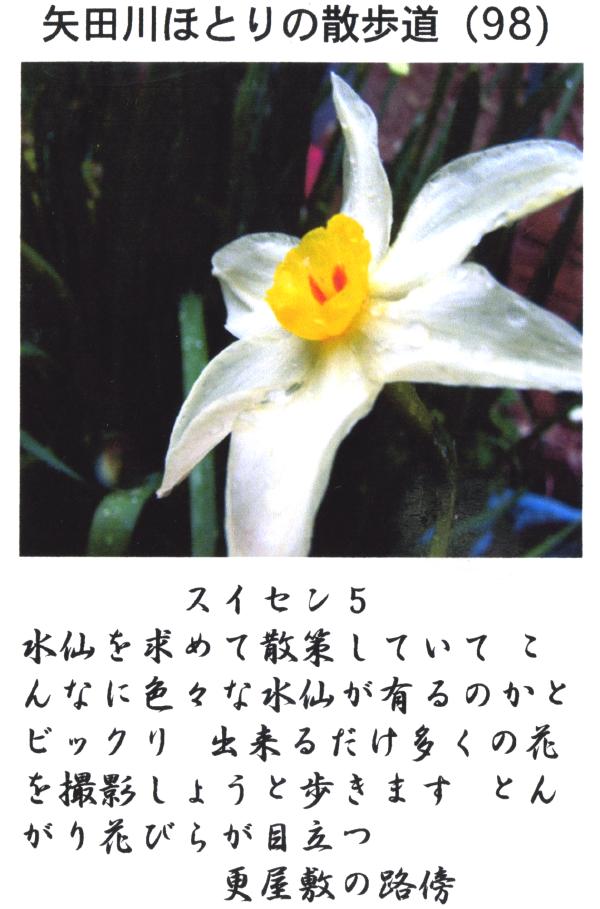 矢田川ほとりの散歩道（98）
スイセン５
水仙を求めて散策していて こ
んなに色々な水仙が有るのかと
ビックリ 出来るだけ多くの花
を撮影しょうと歩きます とん
がり花びらが目立つ
更屋敷の路傍